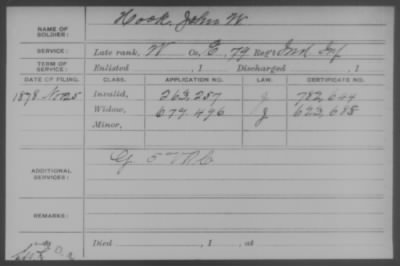 NAME OF SOLDIER: Hook, John W
SERVICE: Late rank, Co. E, 79 Reg't Ind Inf
TERM OF SERVICE: Enlisted , 1 Discharged , 1
DATE OF FILING. CLASS. APPLICATION NO. LAW. CERTIFICATE NO.
1878 Invalid, 263,257 782,644
Widow, 679,496 623,688
Minor,
ADDITIONAL SERVICES: G 57
REMARKS:
Died , 1 , at